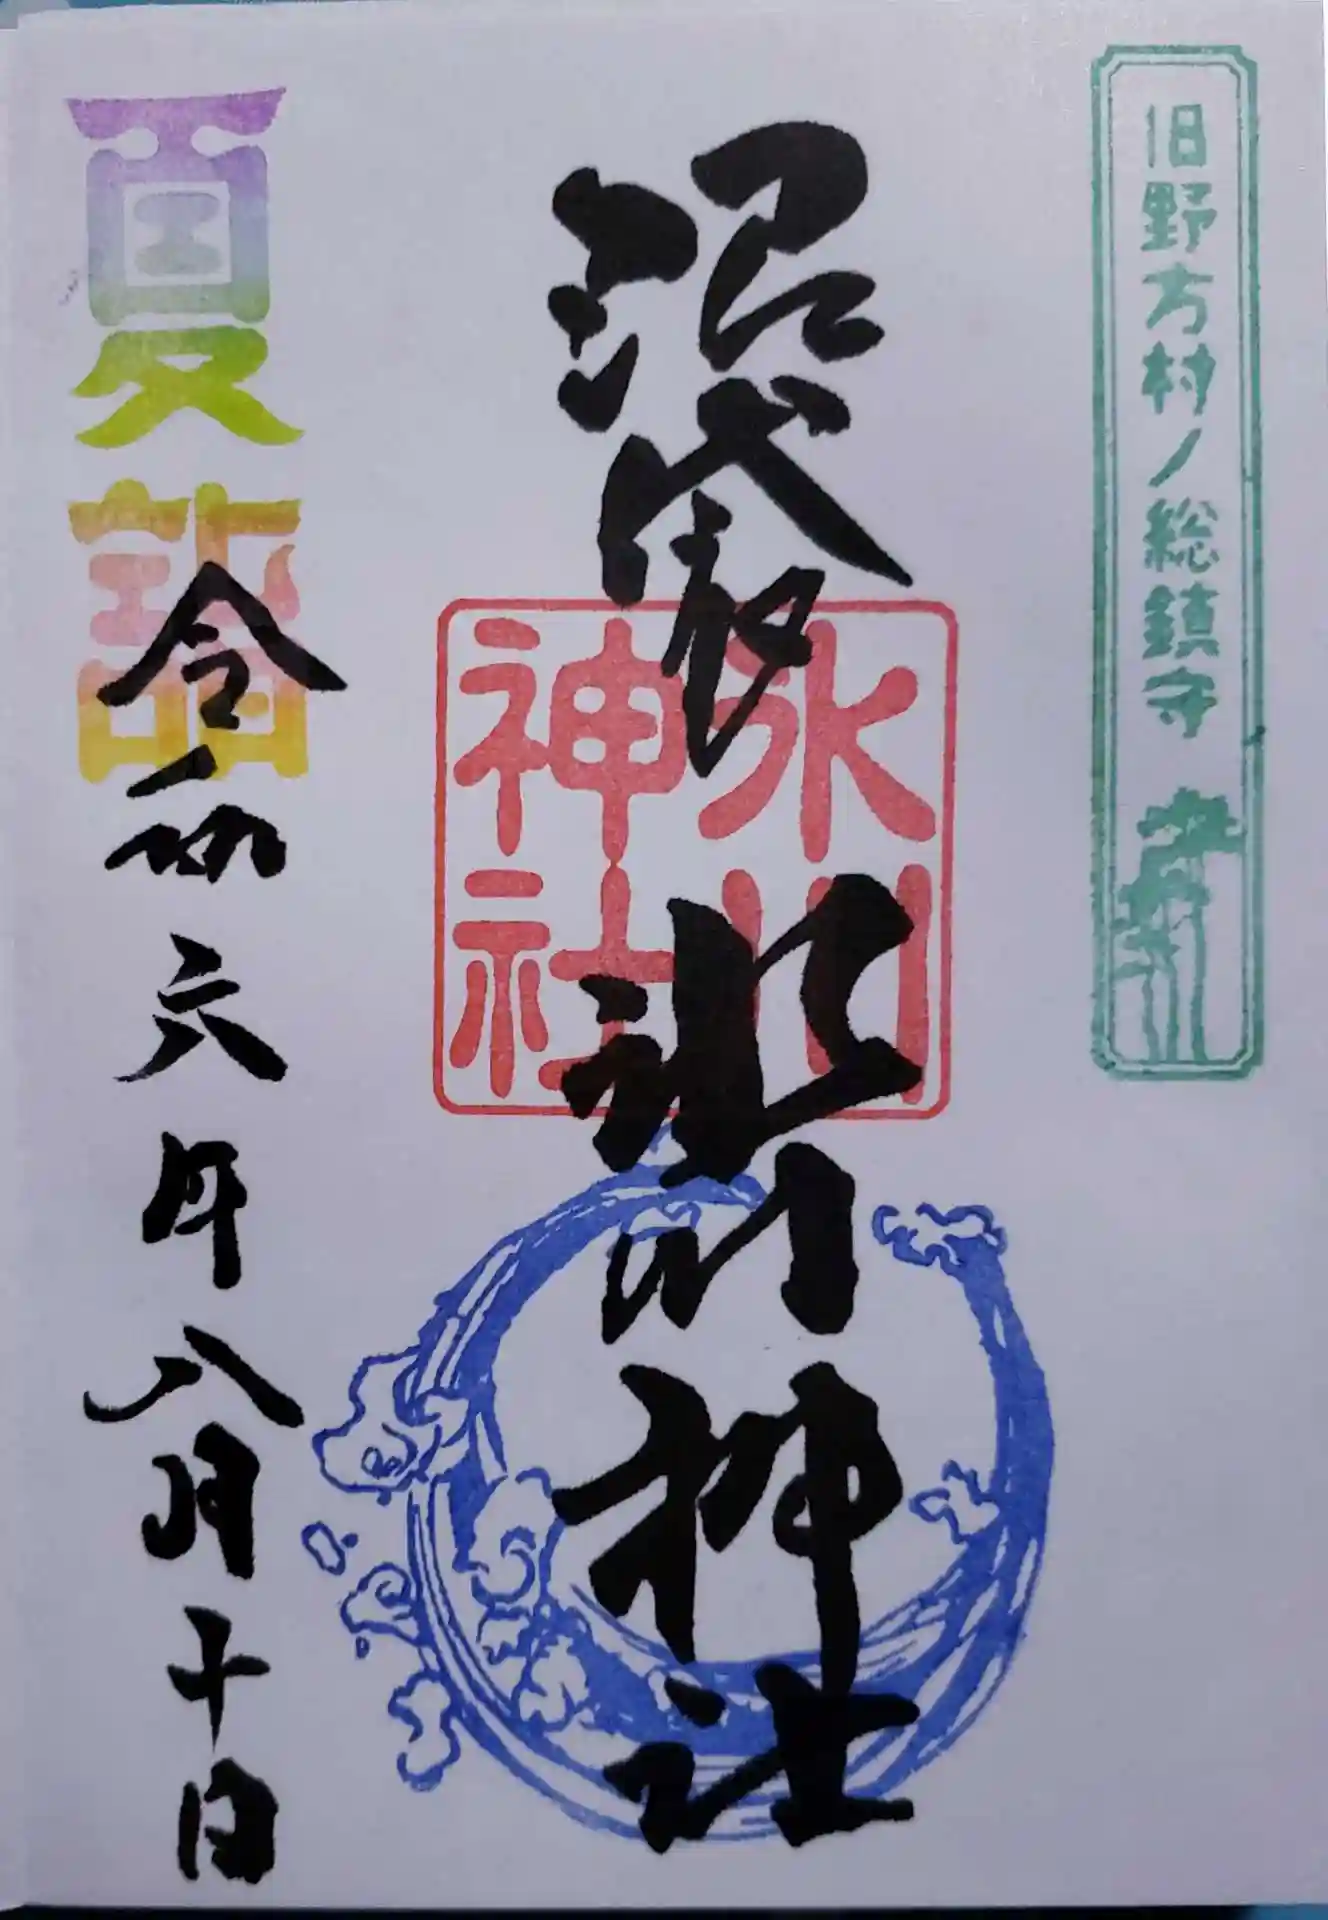 旧野方村ノ総鎮守
沼袋氷川神社
氷川
神社
夏詣
令和六年八月十日